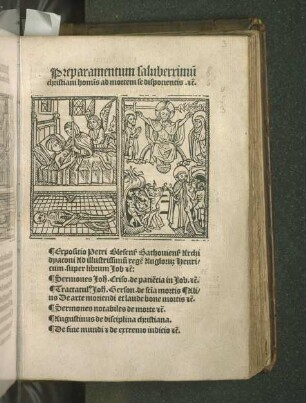 Preparamentum saluberrimū
christiani homĩs ad mortem se disponentis .ꝛc̃.
¶ Expositio Petri Blesenš Bathoniensis Archi
dyaconi Ad illustrissimū regē Angloꝝ Henri-
cum. super librum Job ꝛc̃
¶ Sermones Joh. Criso. de patiẽtia in Job. ꝛc̃.
¶ Tractatulꝰ Joh. Gerson. de sciã mortis
no De arte moriendi et laude bone mortis ꝛc̃
¶ Sermones notabiles de morte ꝛc̃.
¶ Augustinus de disciplina christiana.
¶ De fine mundi ⁊ de extremo iudicio ꝛc̃.